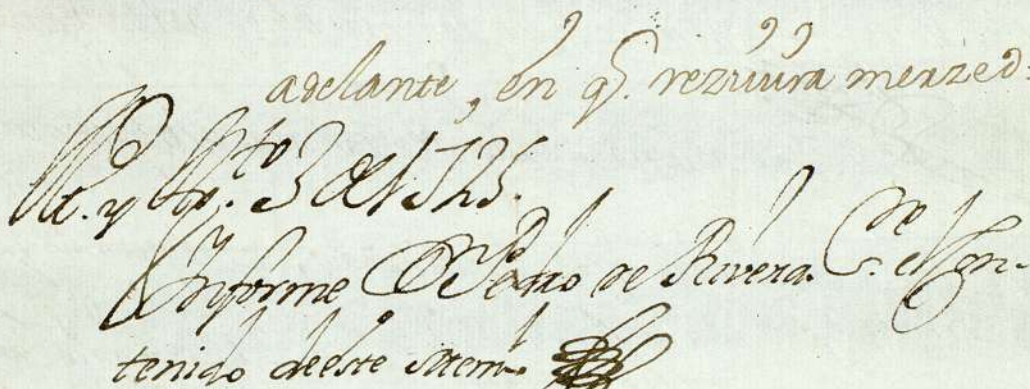 adelante, en q.e reziuira merzed.
M.o y Ag.to 3 de 1725.
Ynforme D.n Pedro de Rivera s.re el Con-
tenido de este mem.l